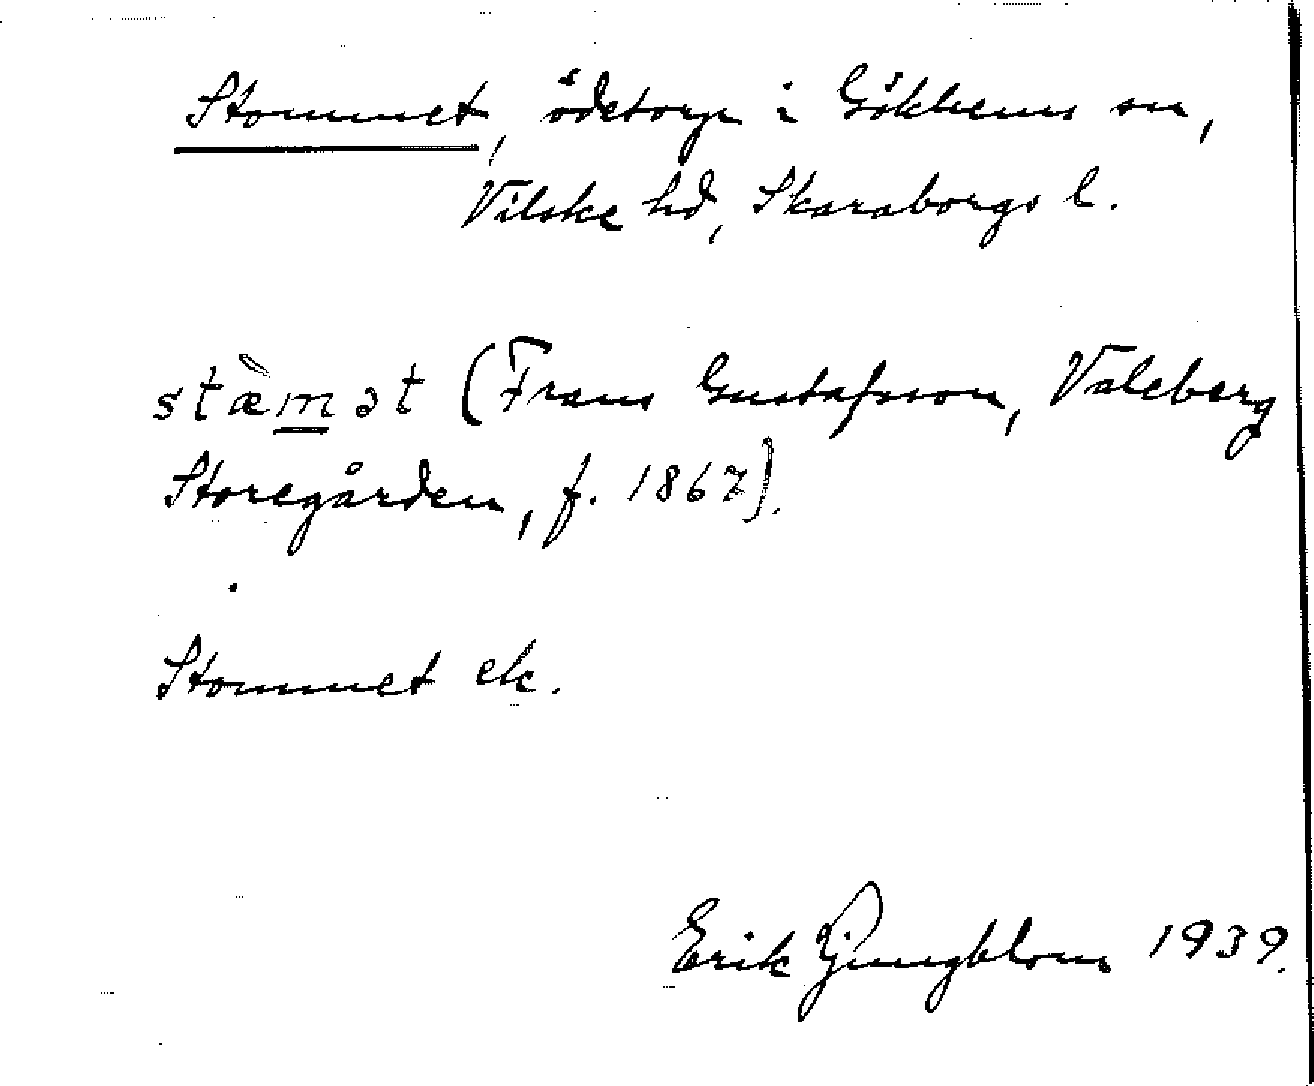 Stommet, ödetorp i Gökhems sn,
Vilske hd, Skaraborgs l.
stæ̀m̲ət (Frans Gustafsson, Valeberg
Storegården, f. 1867).
Stommet ek.
Erik Ljungblom 1939.